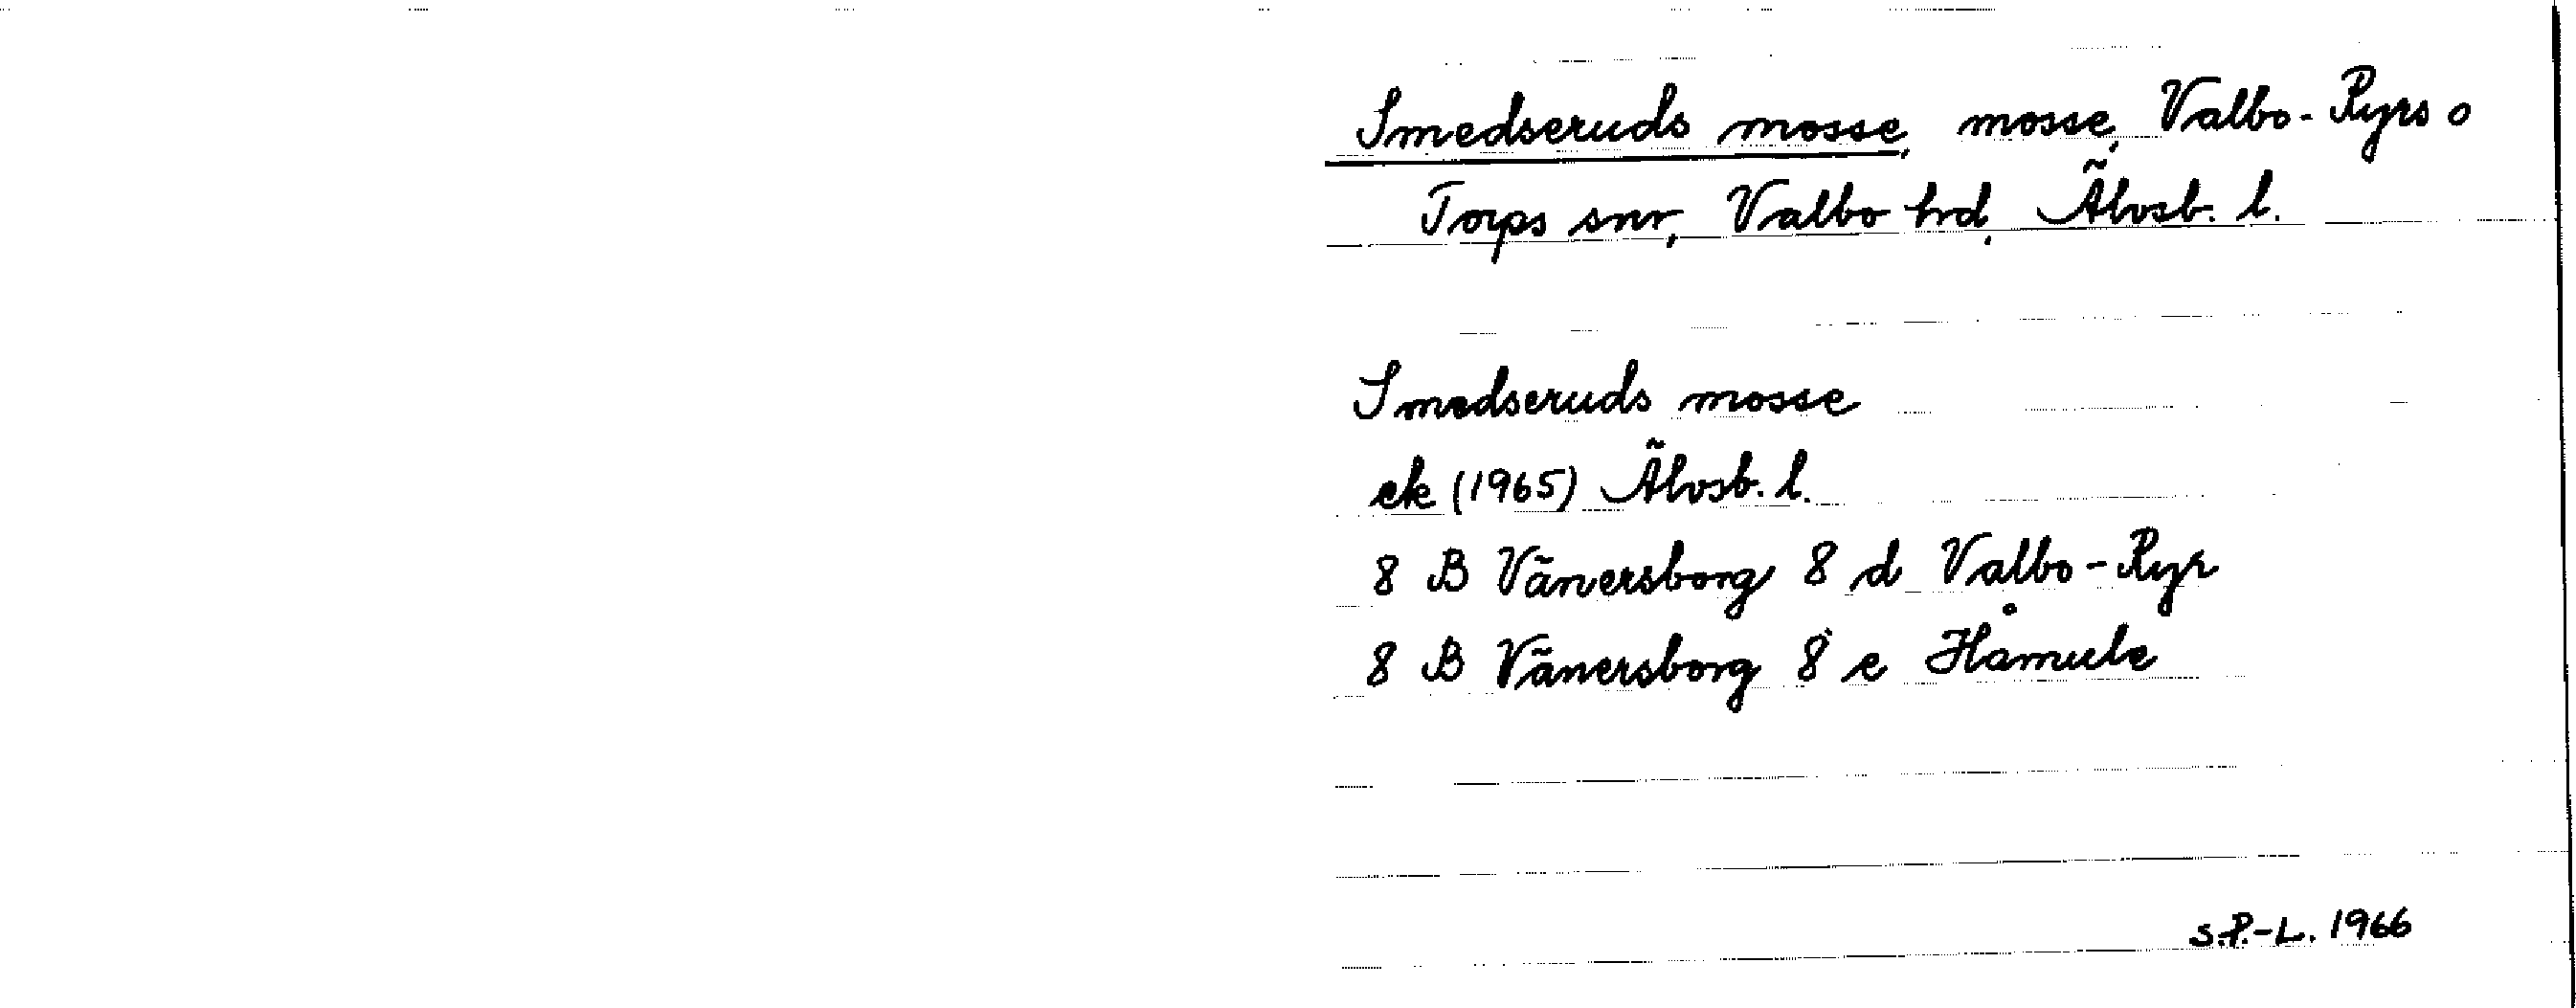 Smedseruds mosse, mosse, Valbo-Ryrs o
Torps snr, Valbo hrd, Älvsb. l.
Smedseruds mosse
ek (1965) Älvsb. l.
8 B Vänersborg 8 d Valbo-Ryr
8 B Vänersborg 8 e Håmule
S.P.-L. 1966